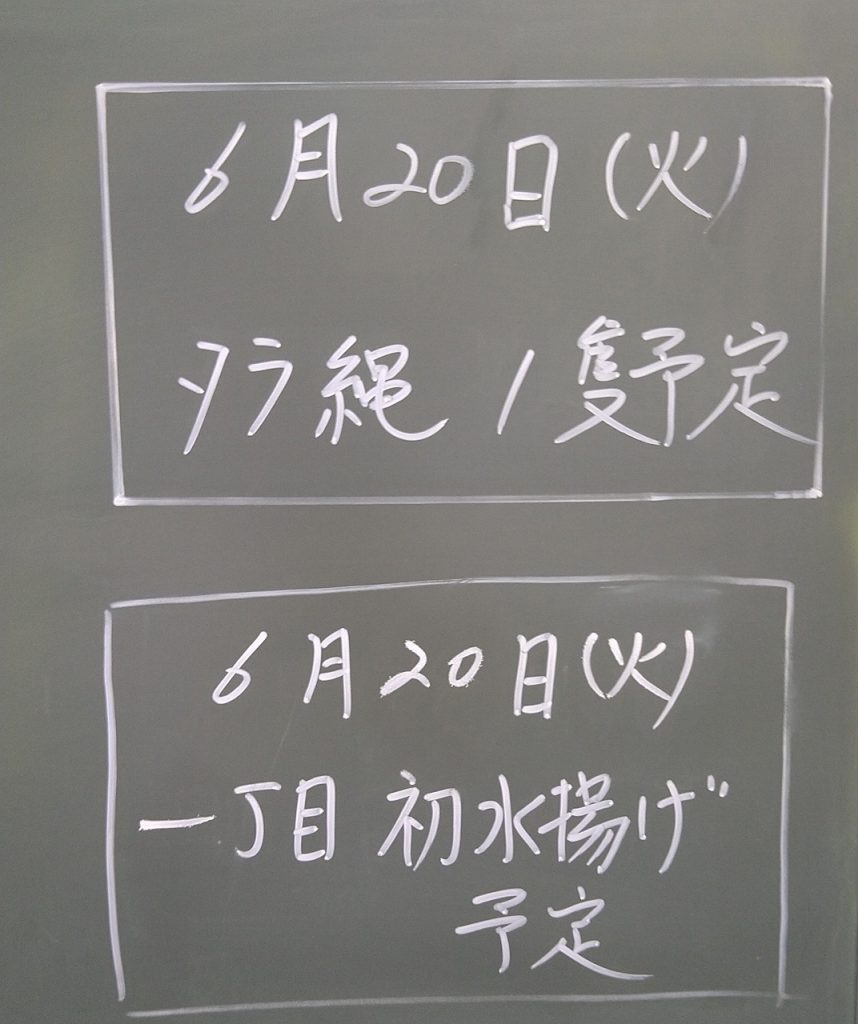 6月20日(火)
タラ縄 1隻予定
6月20日(火)
一丁目 初水揚げ
予定